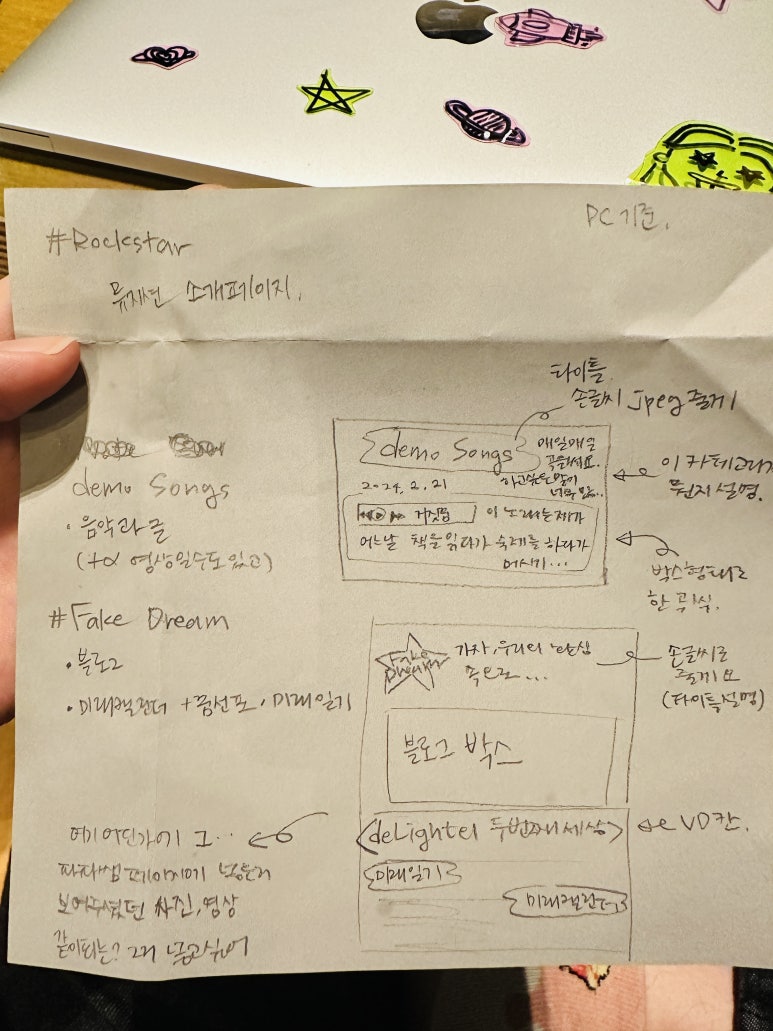 PC기준.
#Rockstar
뮤지션 소개페이지.
타이틀
손글씨 jpeg 줄게
demo Songs
• 음악과 글
(+α 영상일수도 있고)
demo Songs
매일매일
2024. 2. 21
하고싶은 말이
너무 많..
이 카테고리가
뭔지 설명.
거짓말
이 노래는 제가
어느날 책을 읽다가 숙제를 하다가
박스형태로
한 곡씩.
#Fake Dream
• 블로그
• 미래캘린더 + 꿈선포, 미래일기
Fake
Dream
가자, 우리의
속으로...
손글씨로
(타이틀 설명)
블로그 박스
여기 어딘가에 그...
페이지에
보여주셨던 사진, 영상
같이되는? 그거 넣고싶어
두번째 세상
칸.
미래일기
미래캘린더